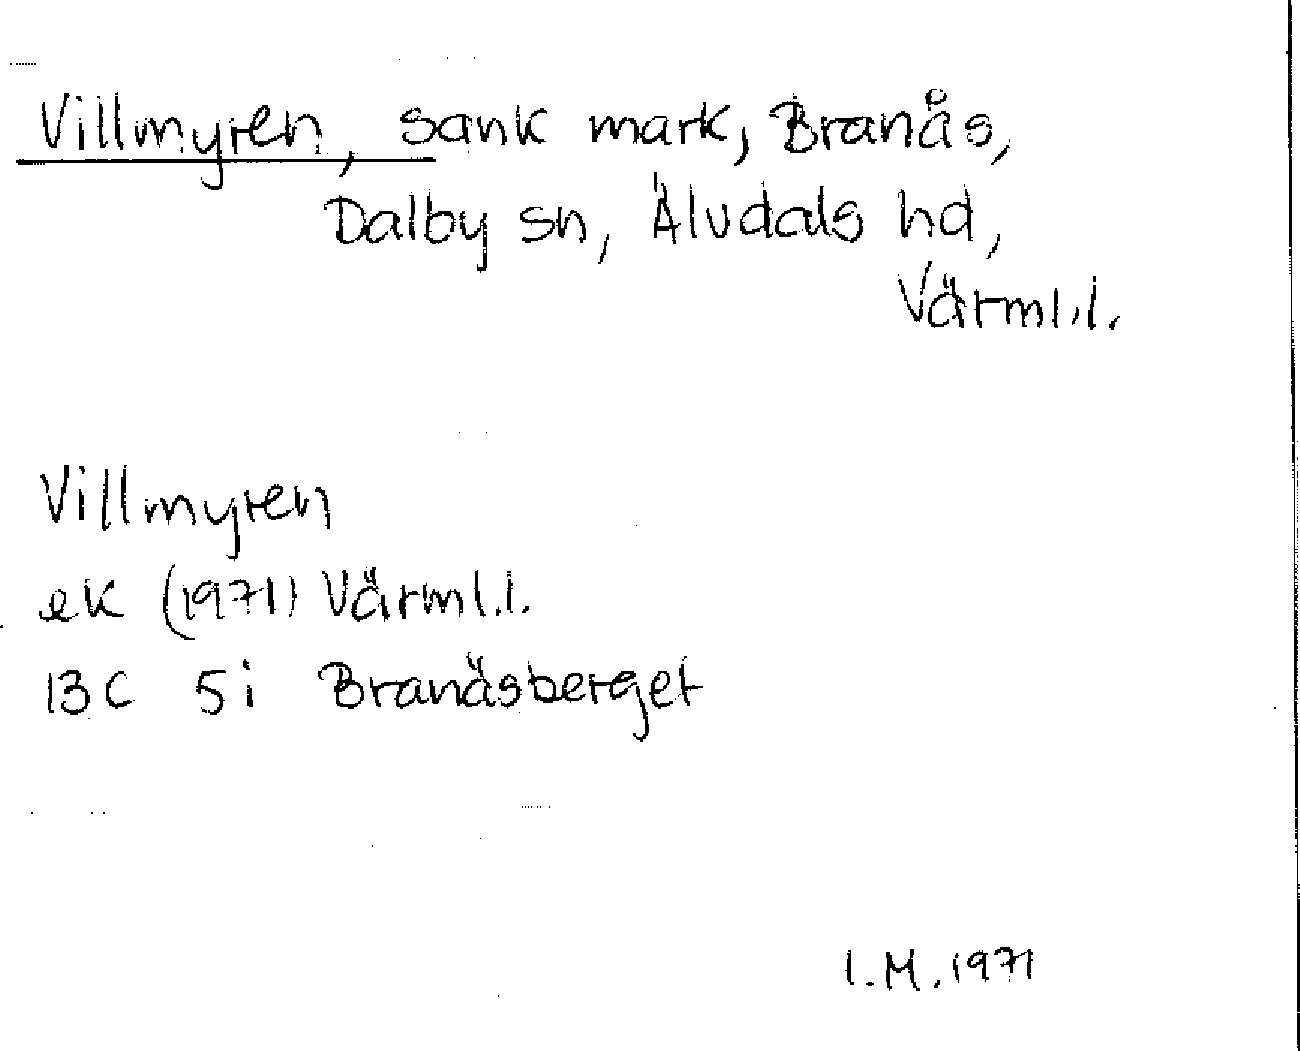 Villmyren, sank mark, Branås,
Dalby sn, Älvdals hd,
Värml.l.
Villmyren
ek (1971) Värml.l.
13C 5i Branäsberget
I.M. 1971